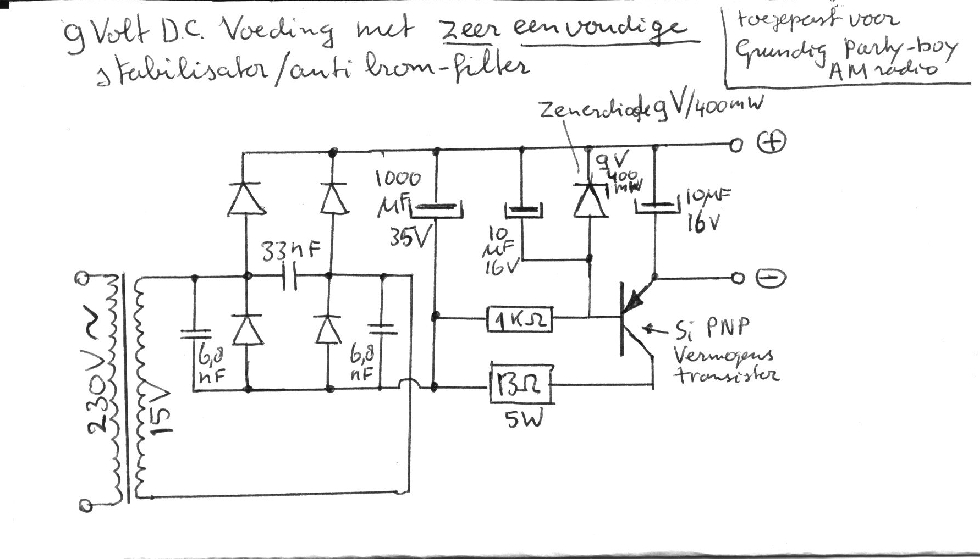 9 Volt D.C. Voeding met zeer eenvoudige
stabilisator/anti brom-filter
toegepast voor
Grundig Party-boy
AM radio
Zenerdiode 9V/400mW
1000
µF
35V
10
µF
16V
9V
400
mW
10µF
16V
33nF
6,8
nF
6,8
nF
1KΩ
13Ω
5W
Si PNP
Vermogens
transistor
230V~
15V
+
-